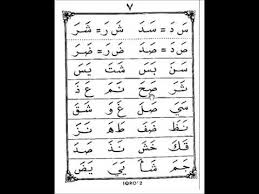 ٧
سَ دَ = سَدَ شَ رَ = شَرَ
صَ دَ = صَدَ ضَ رَ = ضَرَ
سَنَ بَسَ شَتَ يَسَ
شَرَ صَحَ نَمَ عَ ذَ
سَيَ صَلَ غَ وَ شَقَ
نَظَ ضَفَ طَهَ نَزَ
قَكَ خَشَ نَذَ صَدَ
جَمَ شَأَ يَيَ يَضَ
IQRO'2